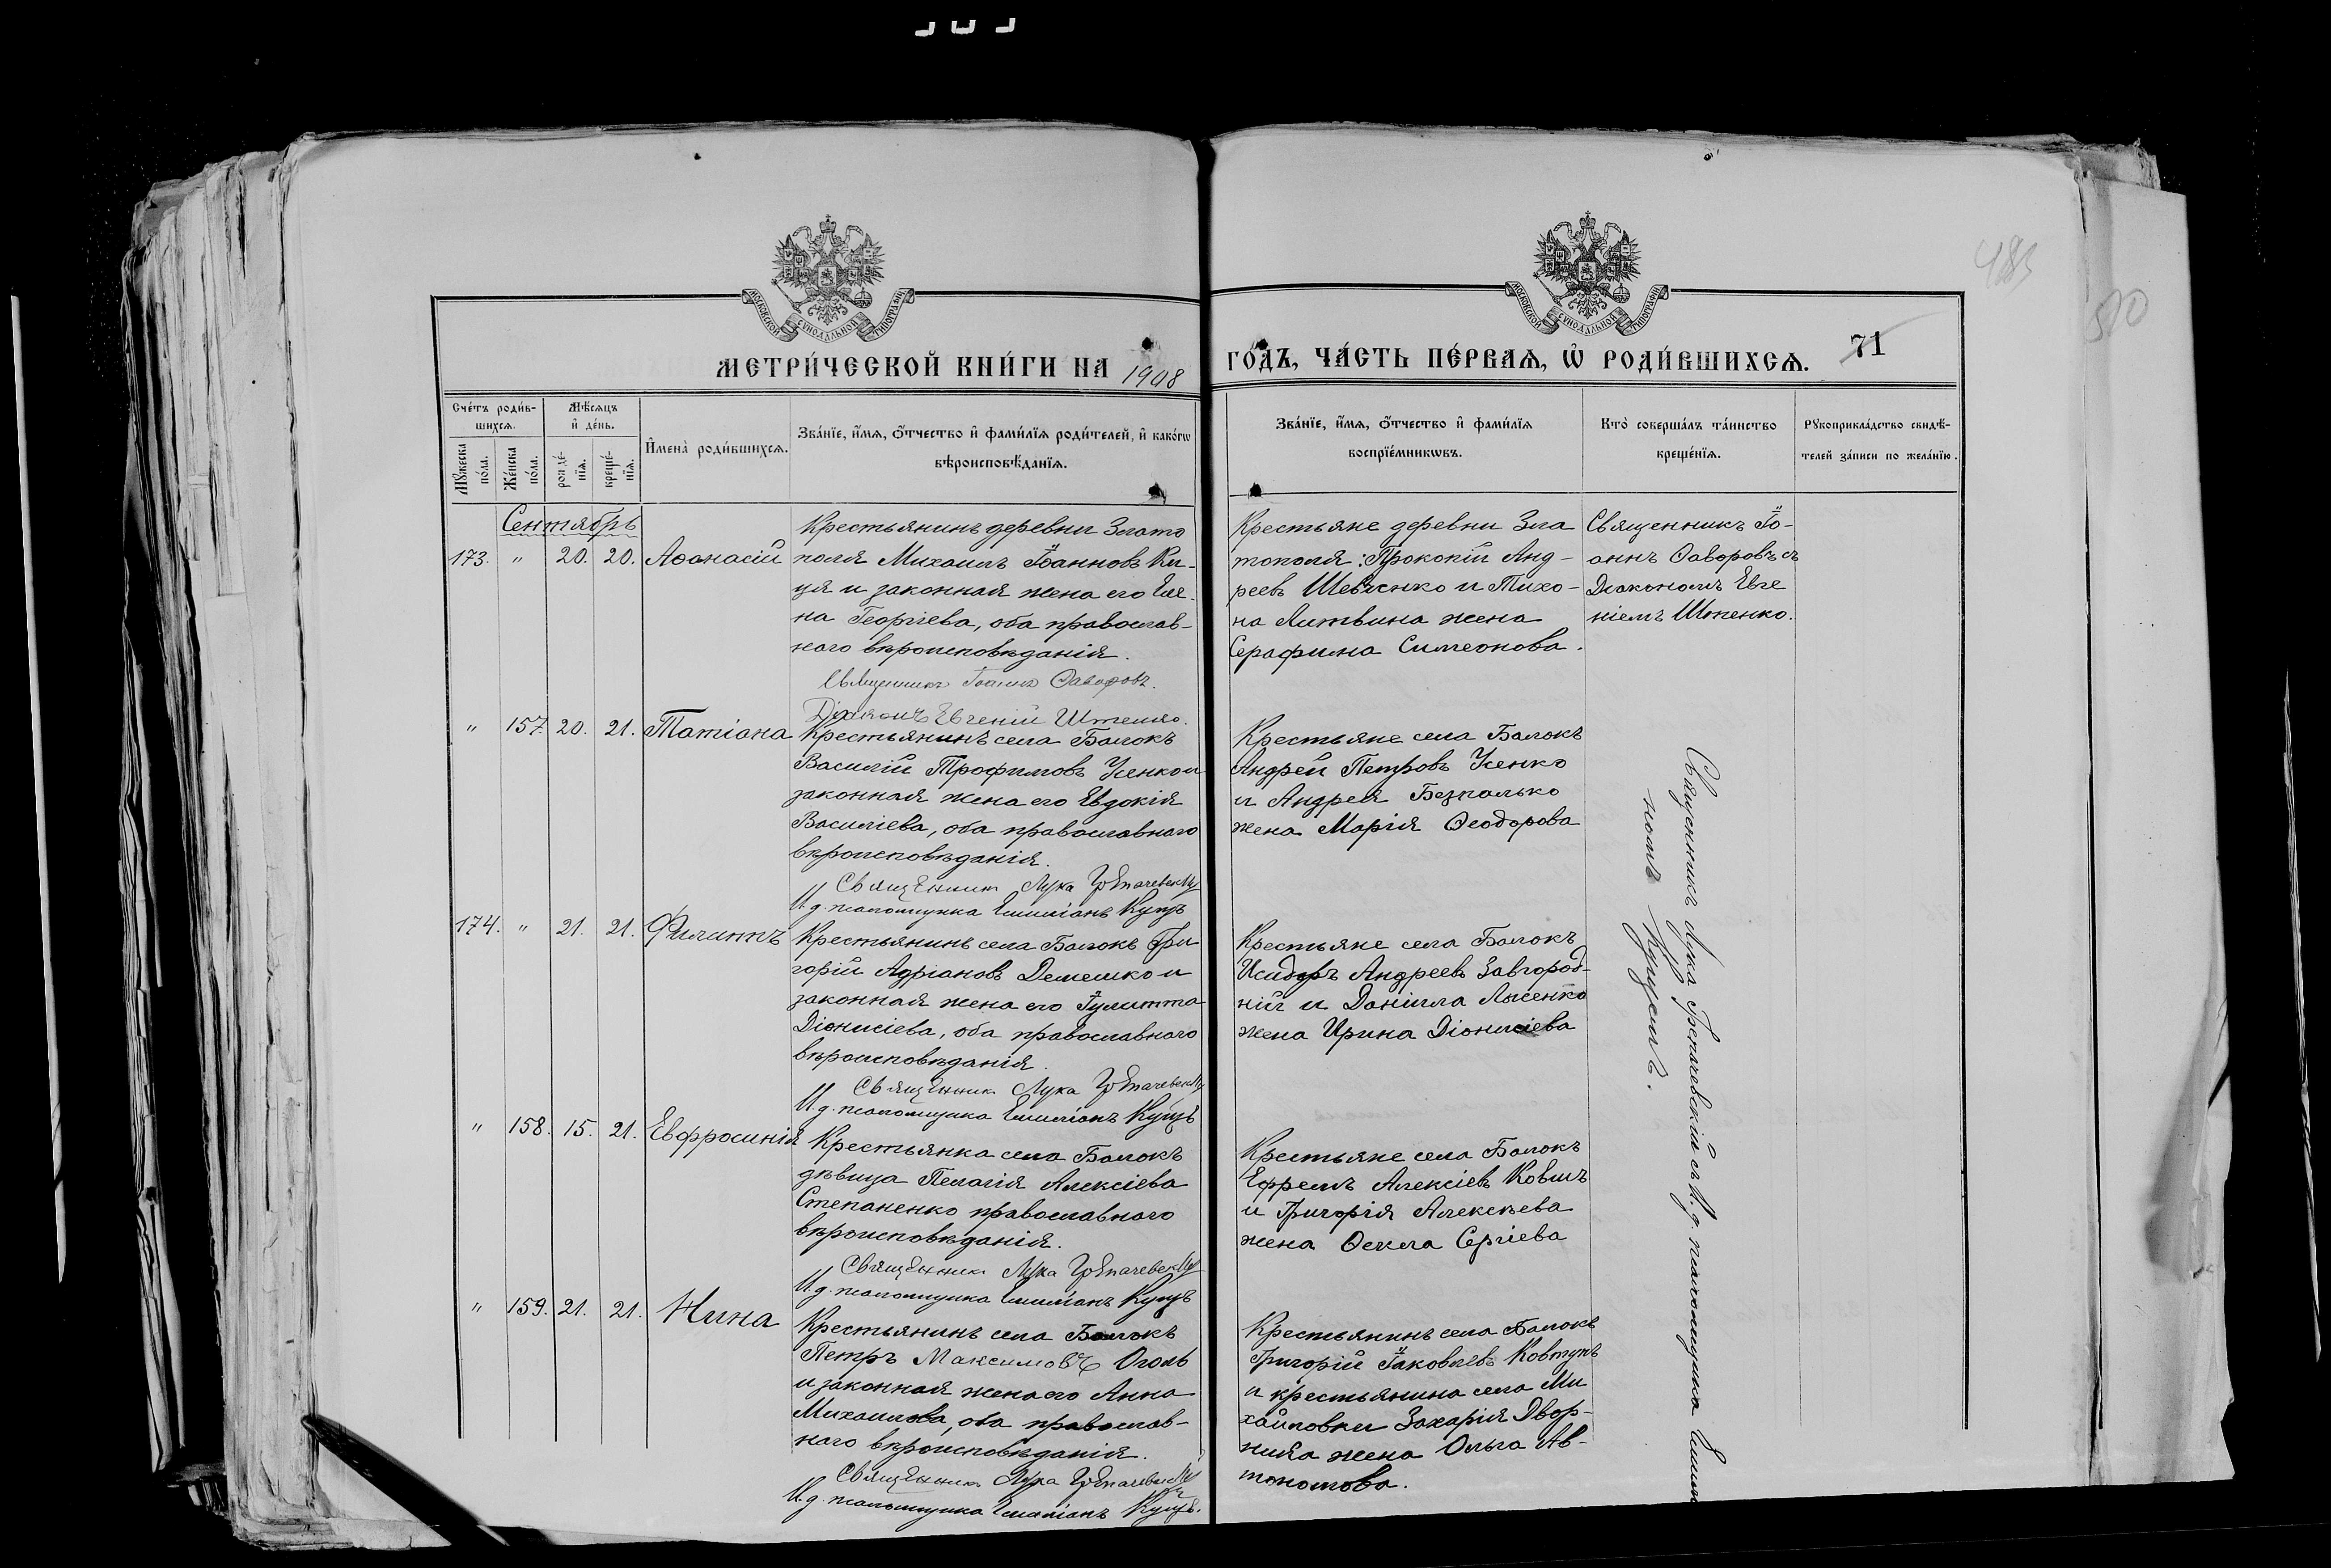 483
510
МОСКОВСКОЙ СѴНОДАЛЬНОЙ ТИПОГРАФІИ
МОСКОВСКОЙ СѴНОДАЛЬНОЙ ТИПОГРАФІИ
МЕТРИ́ЧЕСКОЙ КНИ́ГИ НА 1908
ГО́ДЪ, ЧА́СТЬ ПЕ́РВАѦ, Ѡ҆ РОДИ́ВШИХСѦ.
71
Сче́тъ роди́в-
шихсѧ.
Мѣ́сѧцъ
и҆ де́нь.
Мꙋ́жеска
по́ла.
Же́нска
по́ла.
рожде́-
нїѧ.
креще́-
нїѧ.
И҆мена̀ роди́вшихсѧ.
Зва́нїе, и҆́мѧ, ѻ҆́тчество и҆ фами́лїѧ роди́телей, и҆ како́гѡ
вѣроисповѣ́данїѧ.
Зва́нїе, и҆́мѧ, ѻ҆́тчество и҆ фами́лїѧ
воспрїе́мникѡвъ.
Кто̀ соверша́лъ та́инство
креще́нїѧ.
Рꙋкоприкла́дство свидѣ́-
телей за́писи по жела́нїю.
Сентябрь
173. " 20. 20. Аѳанасій
Крестьянинъ деревни Злато
поля Михаилъ Іоанновъ Ки-
ця и законная жена его Еле-
на Георгіева, оба православ-
наго вѣроисповѣданія.
Священникъ Іоаннъ Ѳаворовъ.
Діаконъ Евгеній Штенко.
Крестьяне деревни Зла
тополя: Прокопій Анд-
реевъ Шевченко и Тихо-
на Литвина жена
Серафима Симеонова.
Священникъ Іо-
аннъ Ѳаворовъ съ
Діакономъ Евге
ніемъ Штенко.
" 157. 20. 21. Татіана
Крестьянинъ села Балокъ
Василій Трофимовъ Усенко и
законная жена его Евдокія
Василіева, оба православнаго
вѣроисповѣданія.
Священникъ Лука Грепачевскій
И. д. псаломщика Емиліанъ Куцъ
Крестьяне села Балокъ
Андрей Петровъ Усенко
и Андрея Безпалько
жена Марія Ѳеодорова
174. " 21. 21. Филиппъ
Крестьянинъ села Балокъ Гри
горій Адріановъ Демешко и
законная жена его Іулитта
Діонисіева, оба православнаго
вѣроисповѣданія.
Священникъ Лука Грепачевскій
И. д. псаломщика Емиліанъ Куцъ
Крестьяне села Балокъ
Исидоръ Андреевъ Завгород-
ній и Даніила Лысенко
жена Ирина Діонисіева
" 158. 15. 21. Евфросинія
Крестьянка села Балокъ
дѣвица Пелагія Алексіева
Степаненко православнаго
вѣроисповѣданія.
Священникъ Лука Грепачевскій
И. д. псаломщика Емиліанъ Куцъ
Крестьяне села Балокъ
Ефремъ Алексіевъ Ковшъ
и Григорія Алексѣева
жена Ѳекла Сергіева
" 159. 21. 21. Нина
Крестьянинъ села Балокъ
Петръ Максимовъ Оголь
и законная жена его Анна
Михаилова, оба православ-
наго вѣроисповѣданія.
Священникъ Лука Грепачевскій
И. д. псаломщика Емиліанъ Куцъ.
Крестьянинъ села Балокъ
Григорій Іаковлевъ Ковтунъ
и крестьянина села Ми
хайловки Захарія Двор-
ника жена Ольга Ав-
тономова.
Священникъ Лука Грепачевскій съ И. д. псаломщика Емилі
номъ Куцемъ.